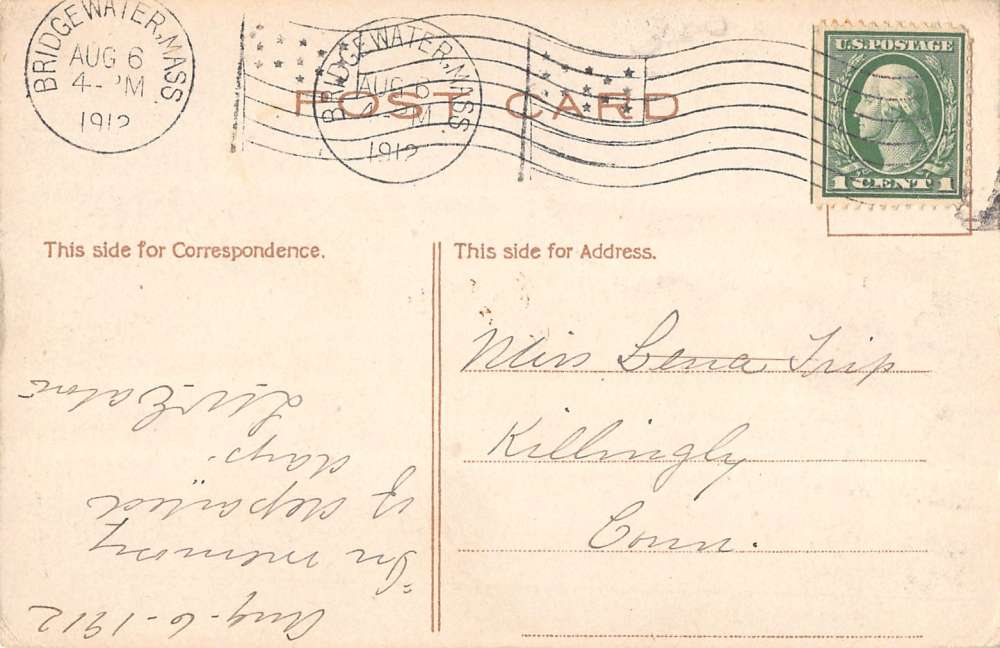 BRIDGEWATER, MASS.
AUG 6
4- PM
1912
BRIDGEWATER, MASS.
AUG 6
PM
1912
POST CARD
U.S. POSTAGE
1 CENT 1
This side for Correspondence.
Aug - 6 - 1912
"In memory
of departed
days"
Eaton
This side for Address.
Miss Lena Trip
Killingly
Conn.